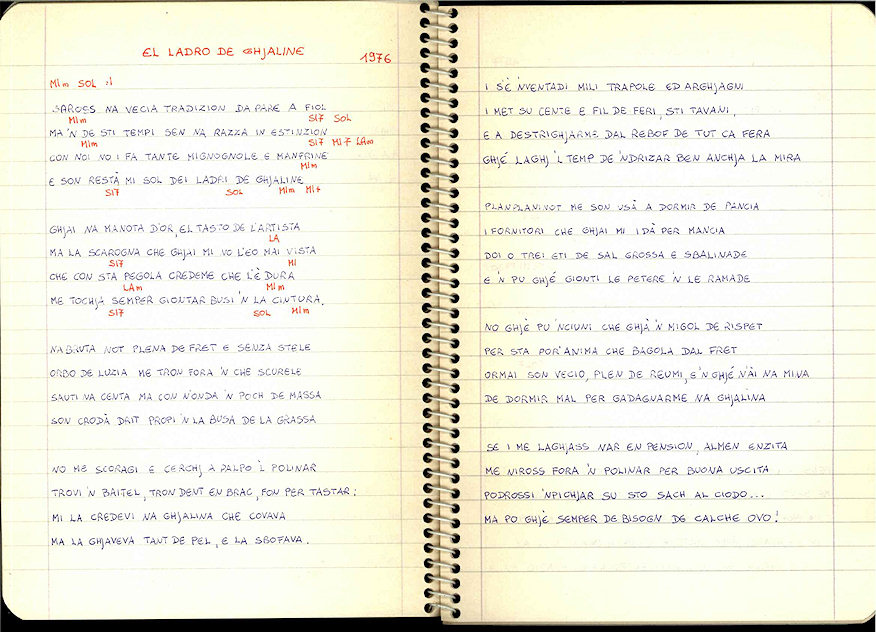 EL LADRO DE GHJALINE
1976
MIm SOL :|
SAROES NA VECIA TRADIZION DA PARE A FIOL
MIm SI7 SOL
MA 'N DE STI TEMPI SEN NA RAZZA IN ESTINZION
MIm SI7 MI7 LAm
CON NOI NO I FA TANTE MIGNOGNOLE E MANFRINE
MIm
E SON RESTÀ MI SOL DEI LADRI DE GHJALINE
SI7 SOL MIm MI+
GHJAI NA MANOTA D'OR, EL TASTO DE L'ARTISTA
LA
MA LA SCAROGNA CHE GHJAI MI VO L'EO MAI VISTA
SI7 MI
CHE CON STA PEGOLA CREDEME CHE L'È DURA
LAm MIm
ME TOCHJA SEMPER GIONTAR BUSI 'N LA CINTURA.
SI7 SOL MIm
NA BRUTA NOT PLENA DE FRET E SENZA STELE
ORBO DE LUZIA ME TRON FORA 'N CHE SCURELE
SAUTI NA CENTA MA CON N'ONDA 'N POCH DE MASSA
SON CRODÀ DRIT PROPI 'N LA BUSA DE LA GRASSA
NO ME SCORAGI E CERCHJ A PALPO 'L POLINAR
TROVI 'N BAITEL, TRON DENT EN BRAC, FON PER TASTAR:
MI LA CREDEVI NA GHJALINA CHE COVAVA
MA LA GHJAVEVA TANT DE PEL, E LA SBOFAVA.
I S'È 'NVENTADI MILI TRAPOLE ED ARGHJAGNI
I MET SU CENTE E FIL DE FERI, STI TAVANI,
E A DESTRIGHJARME DAL REBOF DE TUT CA FERA
GHJÉ LAGHJ 'L TEMP DE 'NDRIZAR BEN ANCHJA LA MIRA
PLANPLANINOT ME SON USÀ A DORMIR DE PANCIA
I FORNITORI CHE GHJAI MI I DÀ PER MANCIA
DOI O TREI ETI DE SAL GROSSA E SBALINADE
E 'N PU GHJÉ GIONTI LE PETERE 'N LE RAMADE
NO GHJÉ PU 'NCIUNI CHE GHJÀ 'N MIGOL DE RISPET
PER STA POR'ANIMA CHE BAGOLA DAL FRET
ORMAI SON VECIO, PLEN DE REUMI, E 'N GHJÉ N'ÀI NA MINA
DE DORMIR MAL PER GADAGNARME NA GHJALINA
SE I ME LAGHJASS NAR EN PENSION, ALMEN ENZITA
ME NIROSS FORA 'N POLINAR PER BUONA USCITA
PODROSSI 'NPICHJAR SU STO SACH AL CIODO...
MA PO GHJÉ SEMPER DE BISOGN DE CALCHE OVO!